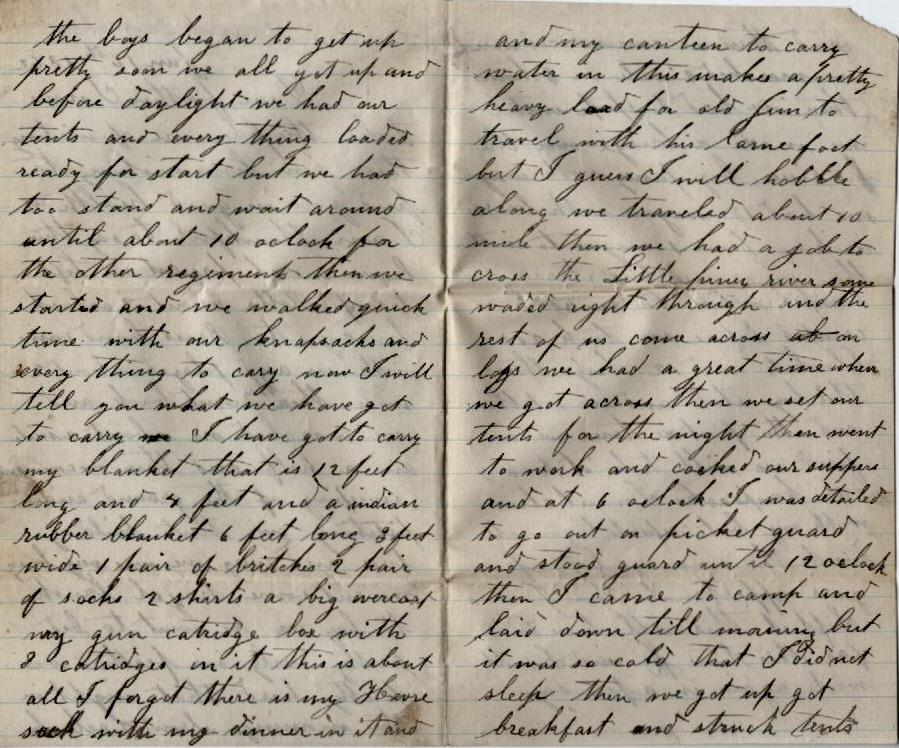 the boys began to get up
pretty soon we all got up and
before daylight we had our
tents and every thing loaded
ready for start but we had
too stand and wait around
until about 10 oclock for
the other regiment then we
started and we walked quick
time with our knapsacks and
every thing to cary now I will
tell you what we have got
to carry I have got to carry
my blanket that is 12 feet
long and feet and a indian
rubber blanket 6 feet long 3 feet
wide 1 pair of britches 2 pair
of socks 2 shirts a big overcoat
my gun catridge box with
catridges in it this is about
all I forgot there is my Havre
sack with my dinner in it and
and my canteen to carry
water in this makes a pretty
heavy load for old Jim to
travel with his lame foot
but I guess I will hobble
along we traveled about 10
mile then we had a job to
cross the Little piney river some
waded right through and the
rest of us come across on
logs we had a great time when
we got across then we set our
tents for the night then went
to work and cooked our suppers
and at 6 oclock I was detailed
to go out on picket guard
and stood guard until 12 oclock
then I came to camp and
laid down till morning but
it was so cold that I did not
sleep then we got up got
breakfast and struck tents